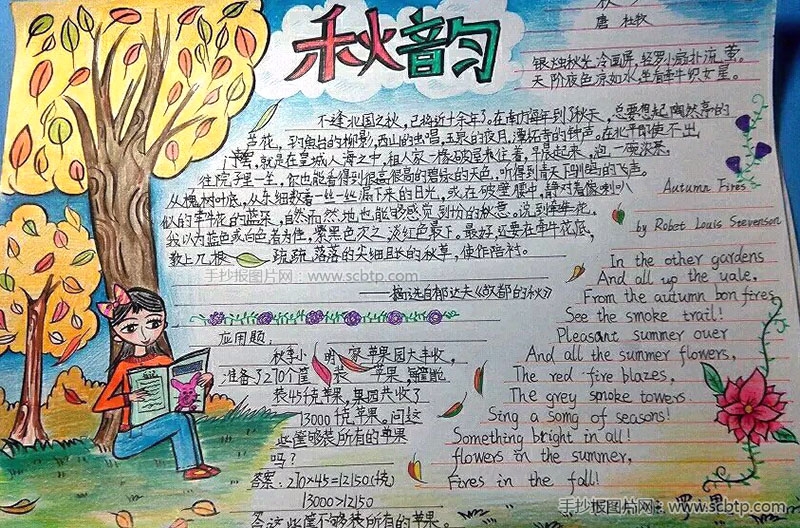 秋韵
唐 杜牧
银烛秋光冷画屏,轻罗小扇扑流萤。
天阶夜色凉如水,坐看牵牛织女星。
不逢北国之秋,已将近十余年了。在南方每年到了秋天,总要想起陶然亭的
芦花,钓鱼台的柳影,西山的虫唱,玉泉的夜月,潭柘寺的钟声。在北平即使不出
门,就是在皇城人海之中,租人家一椽破屋来住着,早晨起来,泡一碗浓茶,
往院子里一坐,你也能看得到很高很高的碧绿的天色,听得到青天下驯鸽的飞声。
从槐树叶底,向东细数着一丝一丝漏下来的日光,或在破壁腰中,静对着像喇叭
似的牵牛花的蓝朵,自然而然地也能够感觉到十分的秋意。说到牵牛花,
我以为蓝色或白色者为佳,紫黑色次之,淡红色最下。最好,还要在牵牛花底,
教长几根 疏疏落落的尖细且长的秋草,使作陪衬。
——摘选自郁达夫《故都的秋》
手抄报图片网:www.scbtp.com
应用题:
秋季小明家苹果园大丰收,
准备了270个筐装苹果,每筐能
装45千克苹果,果园共收了
13000千克苹果。问这
些筐够装所有的苹果
吗?
答案:270×45=12150(千克)
13000>12150
答这些筐不够装所有的苹果。
Autumn Fires
by Robet Louis Stevenson
In the other gardens
And all up the vale,
From the autumn bon fires
See the smoke trail!
Pleasant summer over
And all the summer flowers,
The red fire blazes,
The grey smoke towers.
Sing a song of seasons!
Something bright in all!
flowers in the summer,
Fires in the fall!
手抄报图片网:www.scbtp.com